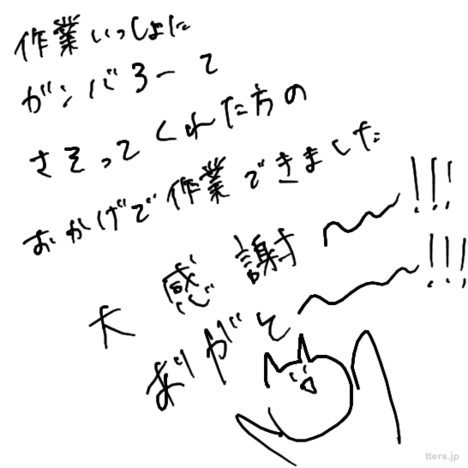 作業いっしょに
ガンバろーて
さそってくれた方の
おかげで作業できました
大感謝〜〜!!!
ありがと〜〜!!!
tters.jp